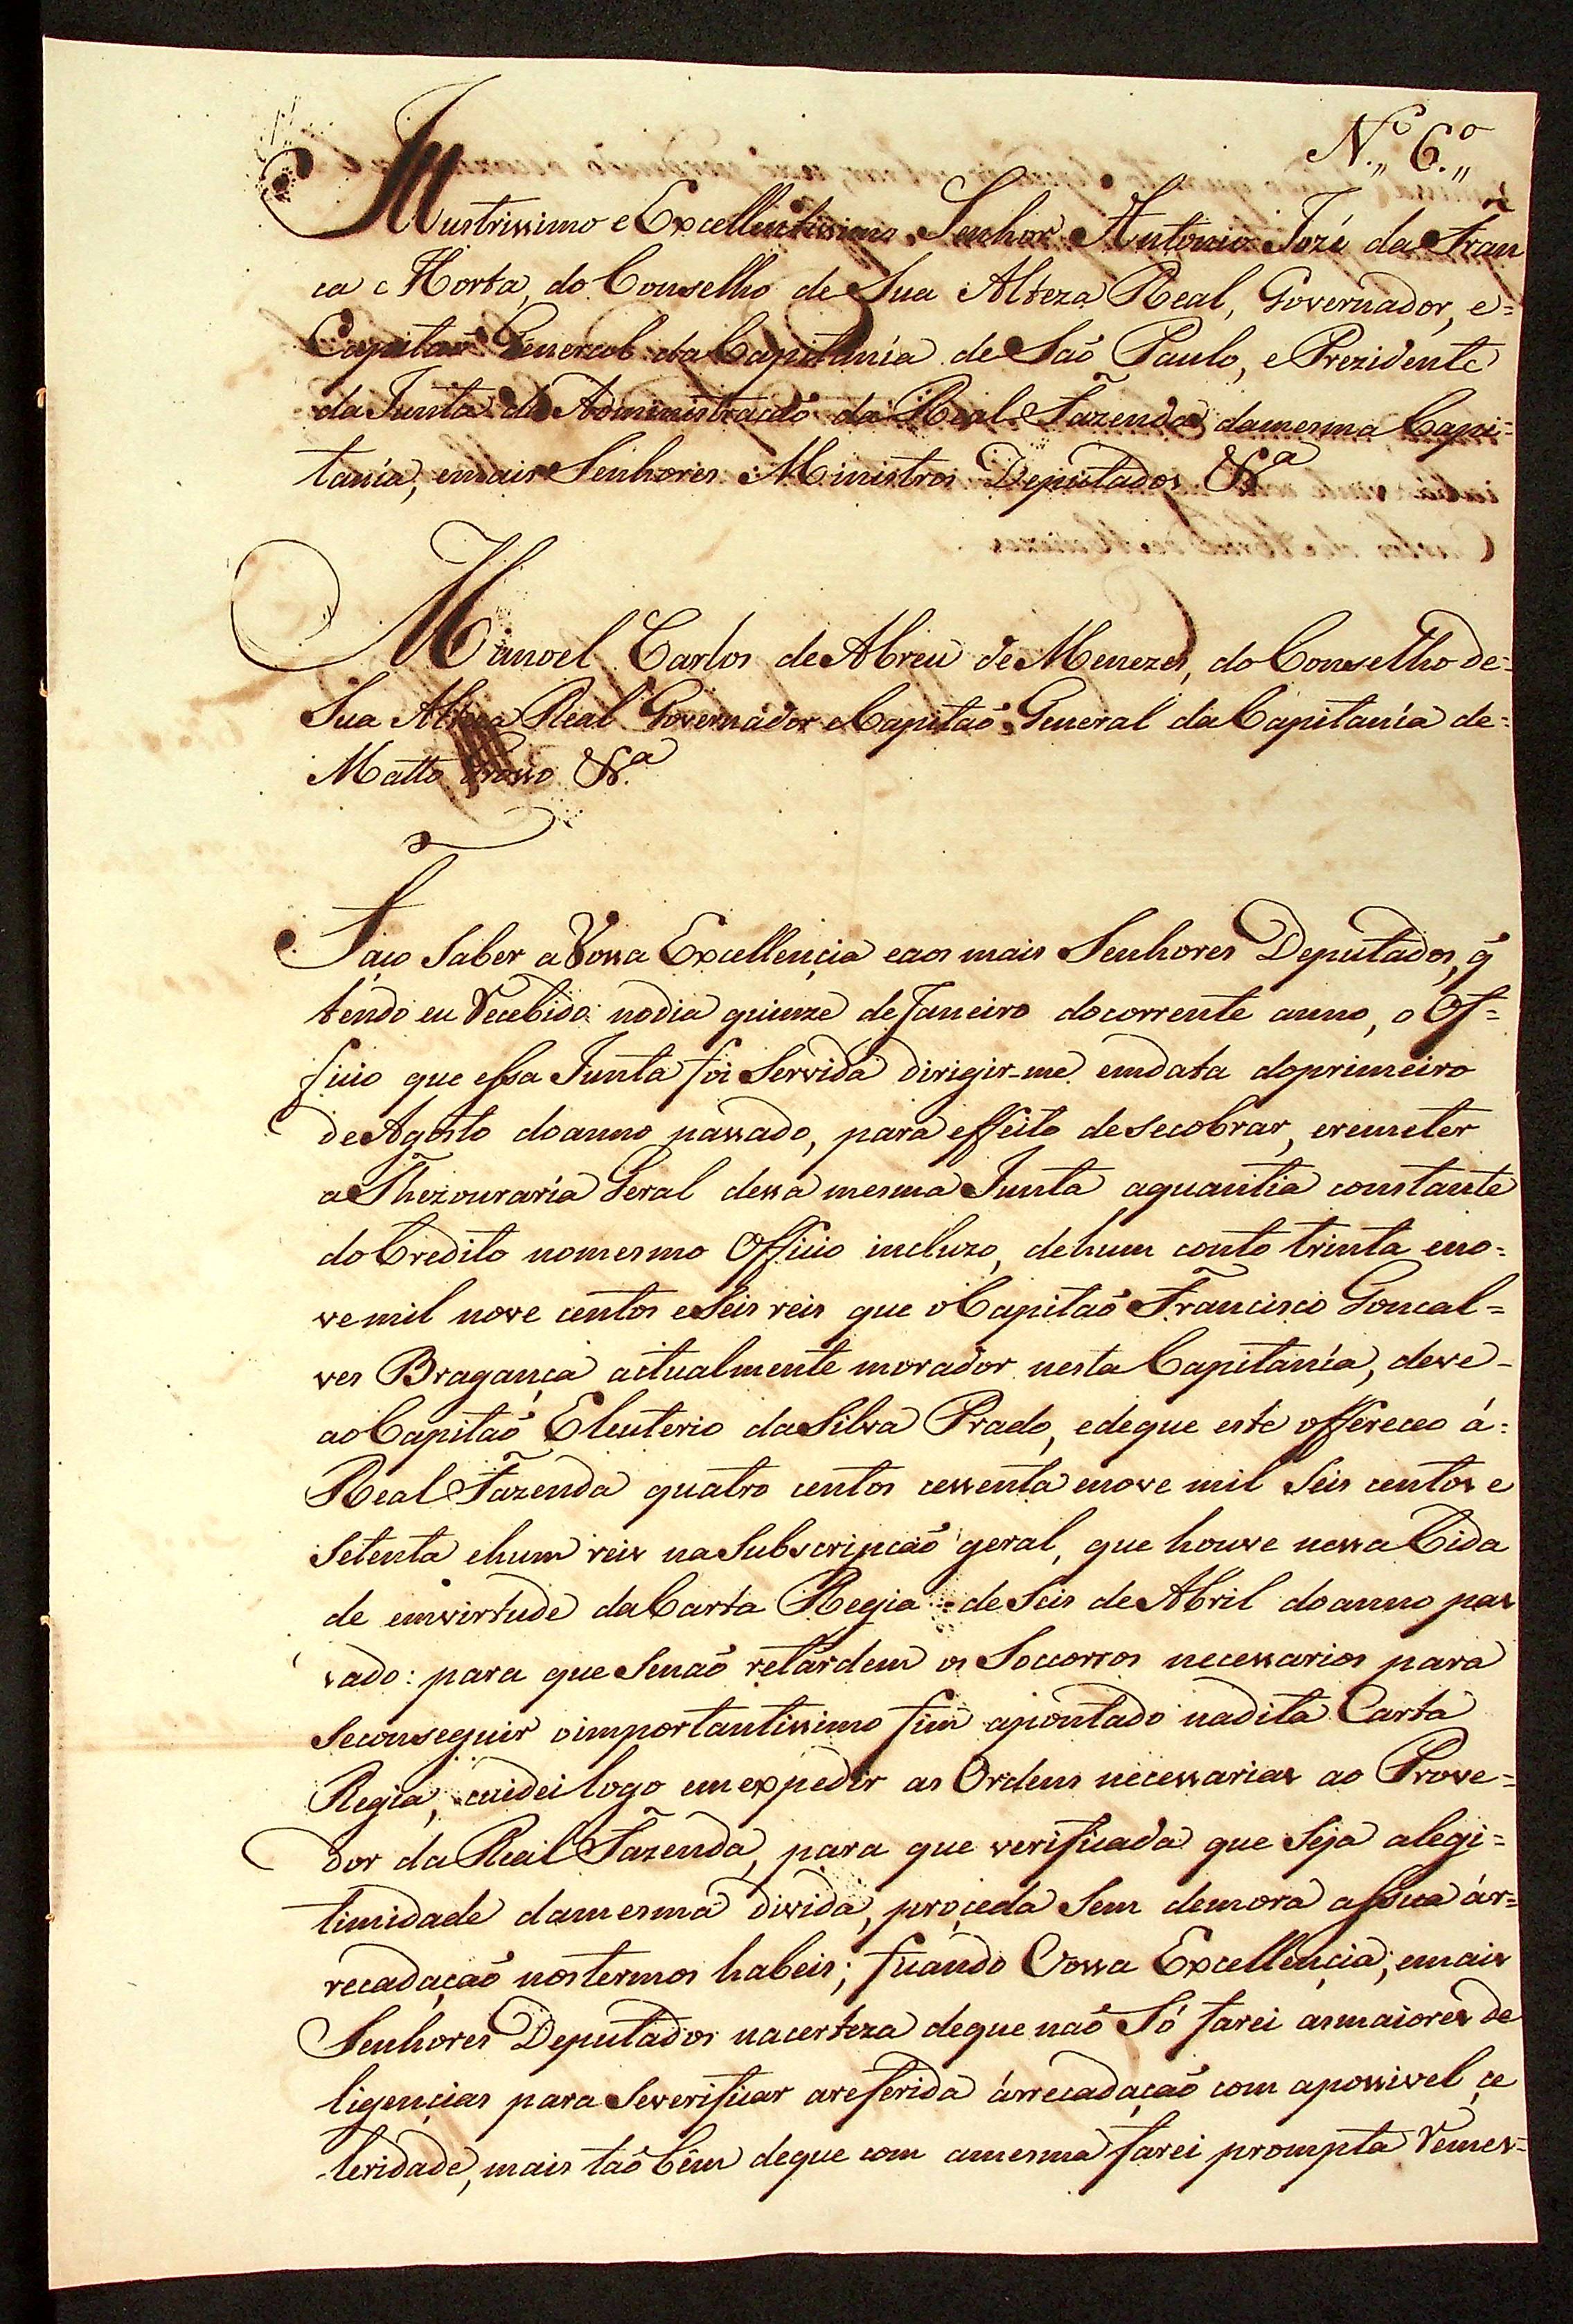 N.º 6.º
Illustrissimo e Excellentissimo Senhor Antonio Jozé da Fran
ca e Horta, do Conselho de Sua Alteza Real, Governador, e=
Capitaõ General da Capitanía de Saõ Paulo, e Prezidente
da Junta da Administracaõ da Real Fazenda damesma Capi=
tanía, emais Senhores Ministros Deputados &ª
Manoel Carlos de Abreu de Menezes, do Conselho de=
Sua Alteza Real Governador e Capitaõ General da Capitanía de=
Matto Grosso &.ª
Faço Saber a Vossa Excellençia eaos mais Senhores Deputados, q̃
tendo eu Recebido nodia quinze de Janeiro docorrente anno, o Of=
ficio que essa Junta foi Servida dirigir-me emdata doprimeiro
de Agosto doanno passado, para effeito desecobrar, eremeter
a Thezouraría Geral dessa mesma Junta aquantia constante
do Credito nomesmo Officio incluzo, dehum conto trinta eno=
vemil nove centos eSeis reis que o Capitaõ Francisco Goncal=
ves Bragança actualmente morador nesta Capitanía, deve-
ao Capitaõ Eleuterio da Silva Prado, edeque este offereceo á=
Real Fazenda quatro centos cessenta enove mil Seis centos e
Setenta ehum reis naSubscripcaõ geral, que houve nessa Cida
de emvirtude da Carta Regia de Seis de Abril doanno pas
sado: para que Senaõ retardem os Soccorros necessarios para
Seconseguir oimportantissimo fim apontado nadita Carta
Regia, cuidei logo emexpedir as Ordens necessarias ao Prove=
dor da Real Fazenda, para que verificada que Seja alegi=
timidade damesma divida, proçeda Sem demora assua ár=
recadaçaõ nostermos habeis; ficando Vossa Excellençia, emais
Senhores Deputados nacerteza deque naõ Só farei asmaiores de
ligençias para Severificar areferida árrecadaçaõ com apossivel çe
leridade, mais taõ bêm deque com amesma farei prompta Remes=